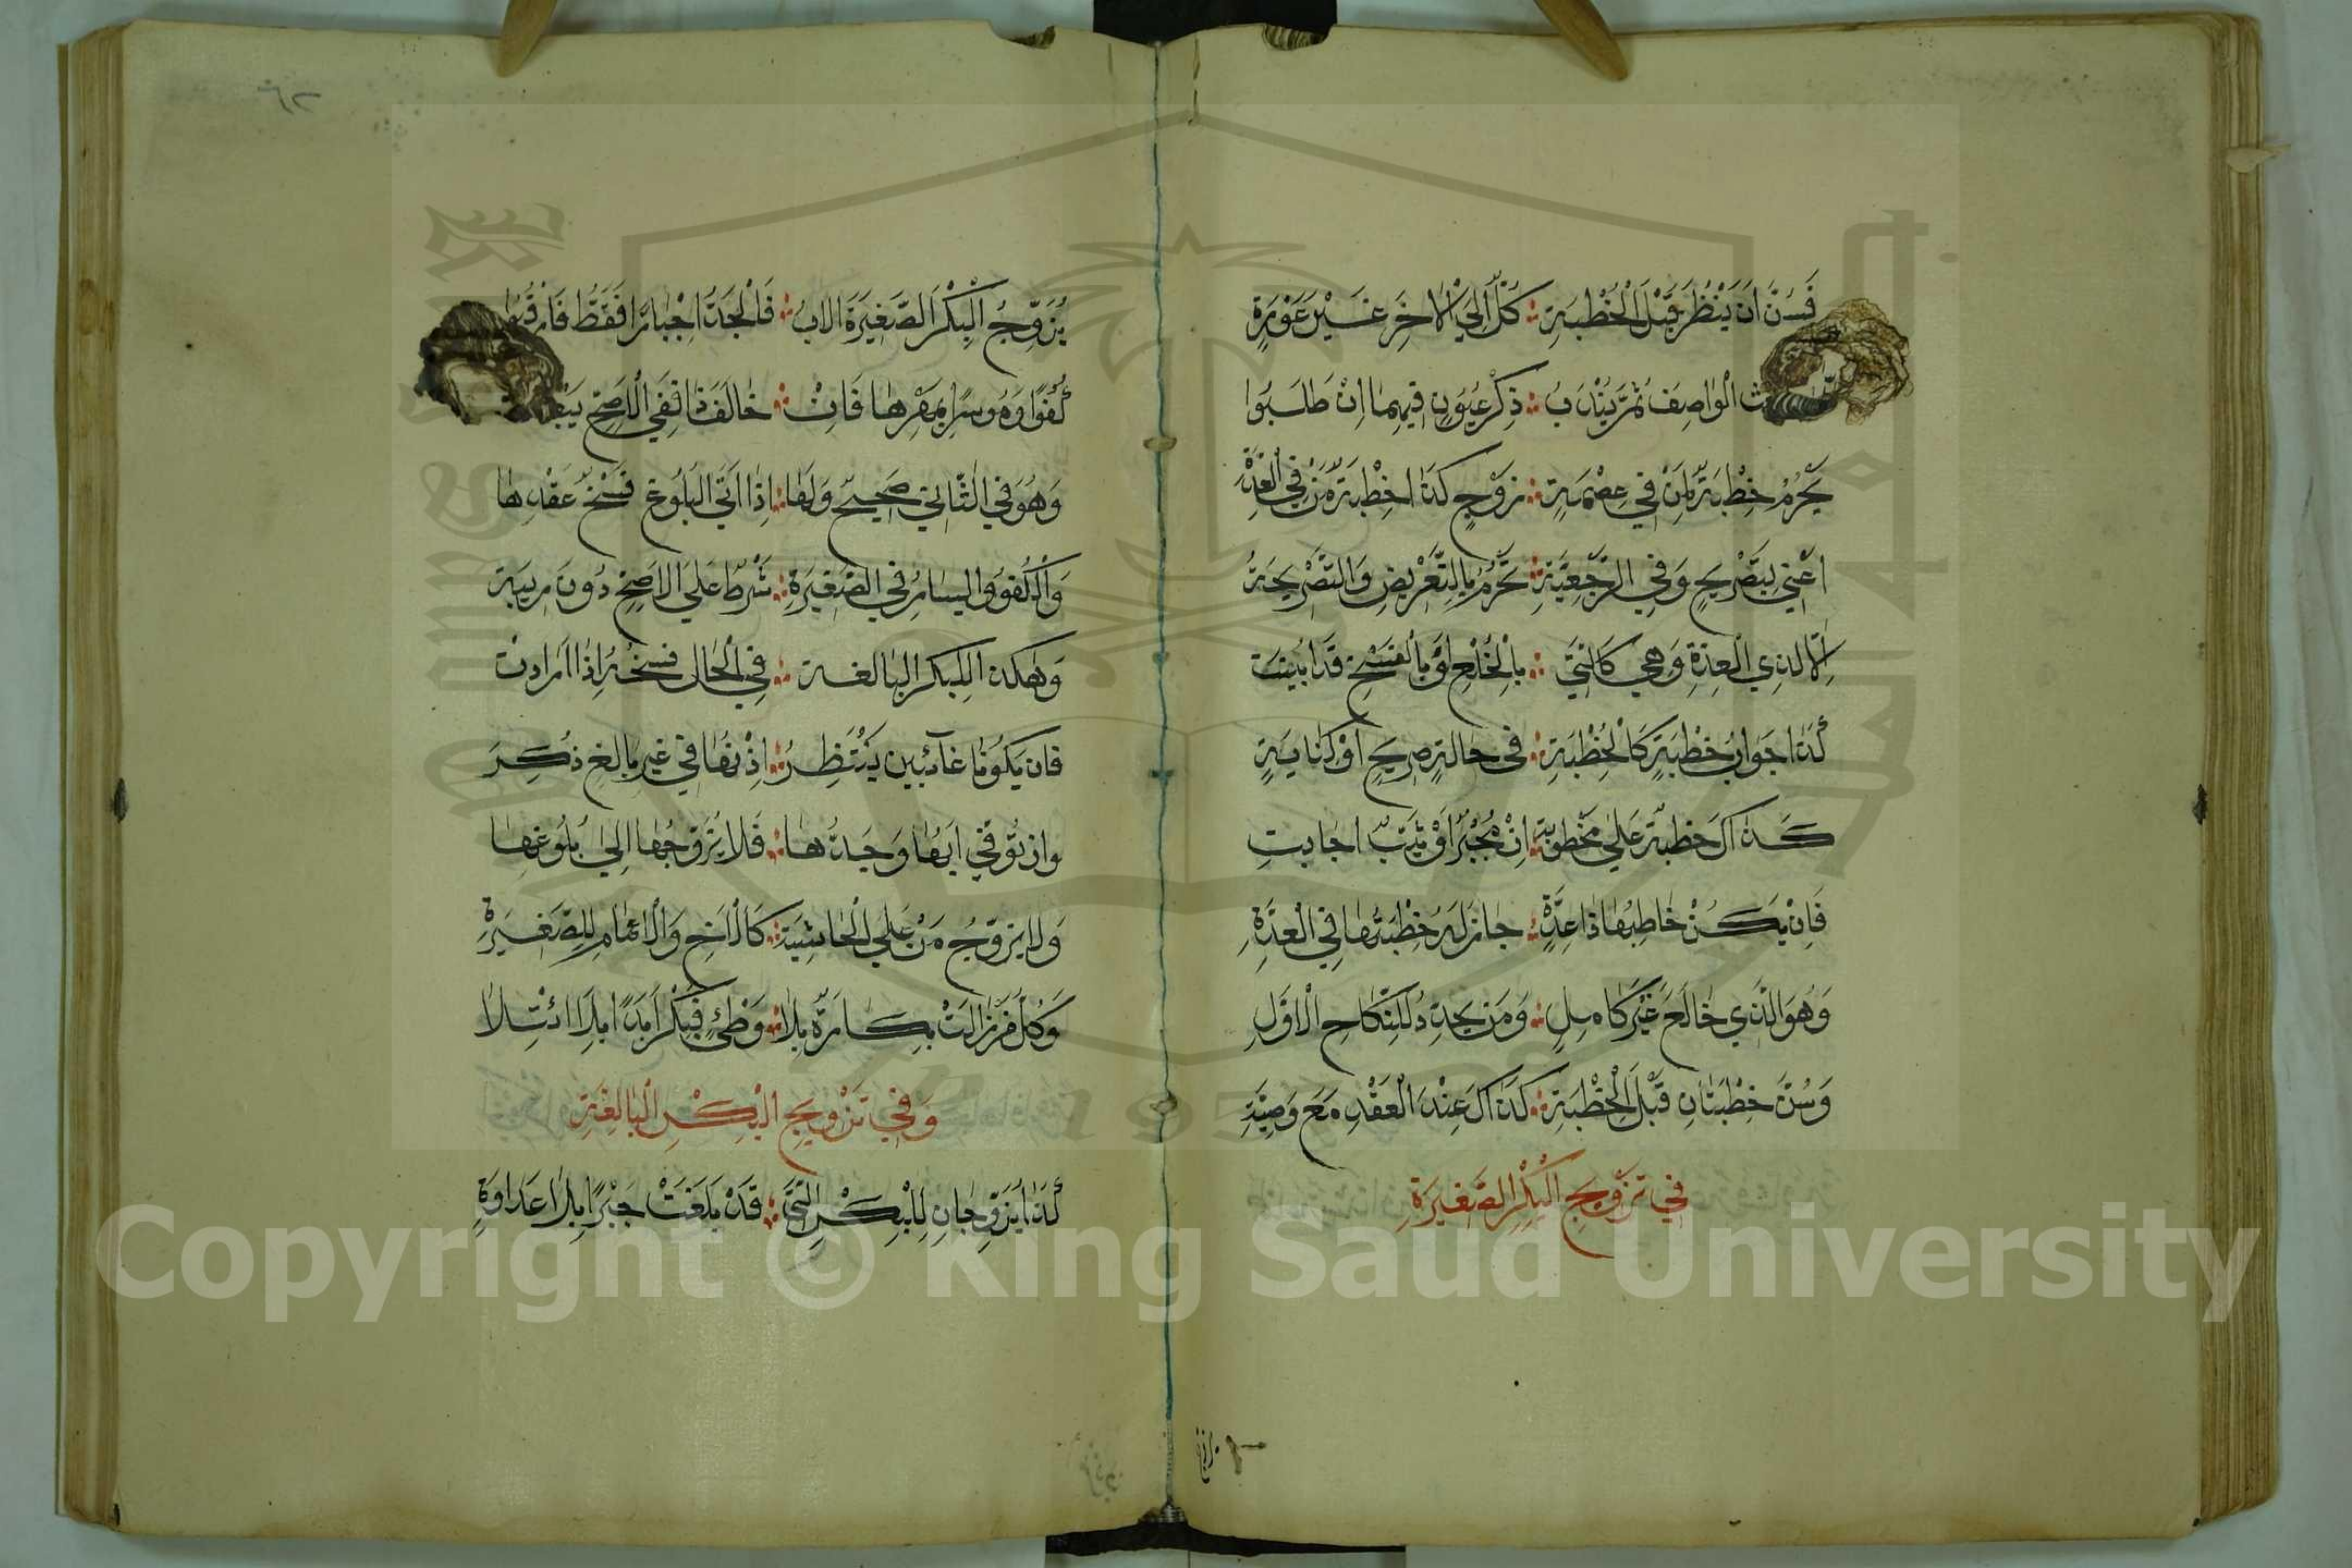 فَسُنَّ اَنْ يَنْظُرَ قَبْلَ الْخُطْبَةِ ؞ كُلٌّ اِلَى الْاٰخِرِ غَيْرَ عَوْرَةٍ
الْوَاصِفَ ثُمَّ يُنْدَبُ ؞ ذِكْرُ عُيُوبٍ فِيهِمَا اِنْ طَلَبُوا
يَحْرُمُ خِطْبَةٌ لِمَنْ فِي عِصْمَةِ ؞ زَوْجٍ كَذَا خِطْبَةُ مَنْ فِي الْعِدَّةْ
اَعْنِي بِتَصْرِيحٍ وَفِي الرَّجْعِيَّةِ ؞ تَحْرُمُ بِالتَّعْرِيضِ وَالتَّصْرِيحَةُ
اِلَّا لِذِي الْعِدَّةِ وَهِيَ كَالَّتِي ؞ بِالْخُلْعِ اَوْ بِالْفَسْخِ قَدْ اُبِينَتِ
كَذَا جَوَابُ خِطْبَةٍ كَالْخِطْبَةِ ؞ فِي حَالَةٍ صَرِيحٍ اَوْ كِنَايَةٍ
كَذَاكَ خِطْبَةٌ عَلَى مَخْطُوبَةِ ؞ اِنْ مُجْبِرٌ اَوْ ثَيِّبٌ اَجَابَتِ
فَاِنْ يَكُنْ خَاطِبُهَا ذَا عِدَّةٍ ؞ جَازَ لَهُ خِطْبَتُهَا فِي الْعِدَّةِ
وَهُوَ الَّذِي خَالَعَ غَيْرَ كَامِلِ ؞ وَمَنْ يُجَدِّدْ لِلنِّكَاحِ الْاَوَّلِ
وَسُنَّ خُطْبَتَانِ قَبْلَ الْخِطْبَةِ ؞ كَذَاكَ عِنْدَ الْعَقْدِ مَعْ وَصِيَّةِ
فِي تَزْوِيجِ الْبِكْرِ الصَّغِيرَةِ
يُزَوِّجُ الْبِكْرَ الصَّغِيرَةَ الْاَبُ ؞ فَالْجَدُّ اِجْبَارًا فَقَطْ
كُفُوًا وَمُوسِرًا بِمَهْرِهَا فَاِنْ ؞ خَالَفَ ذَا فَفِي الْاَصَحِّ
وَهُوَ فِي الثَّانِي صَحِيحٌ وَلَهَا ؞ اِذَا اَتَى الْبُلُوغُ فَسْخُ عَقْدِهَا
وَالْكُفُؤُ وَالْيَسَارُ فِي الصَّغِيرَةِ ؞ شَرْطٌ عَلَى الْاَصَحِّ دُونَ رِيبَةِ
وَهٰكَذَا لِلْبِكْرِ الْبَالِغَةِ ؞ فِي الْحَالِ فَسْخُهُ اِذَا اَرَادَتْ
فَاِنْ يَكُونَا غَائِبَيْنِ يُنْتَظَرُ ؞ اِذْنُهَا فِي غَيْرِ بَالِغٍ ذُكِرَ
وَاِنْ تُوُفِّيَ اَبُهَا وَجَدُّهَا ؞ فَلَا يُزَوِّجُهَا اِلَى بُلُوغِهَا
وَلَا يُزَوِّجُ مَنْ عَلَى الْحَاشِيَةِ ؞ كَالْاَخِ وَالْاَعْمَامِ لِلصَّغِيرَةِ
وَكُلُّ مَنْ زَالَتْ بَكَارَةٌ بِلَا ؞ وَطْءٍ فَبِكْرٌ اَبَدًا بِلَا ائْتِلَا
وَفِي تَزْوِيجِ الْبِكْرِ الْبَالِغَةِ
كَذَا يُزَوِّجَانِ لِلْبِكْرِ الَّتِي ؞ قَدْ بَلَغَتْ جَبْرًا بِلَا عَدَاوَةٍ
Copyright © King Saud University